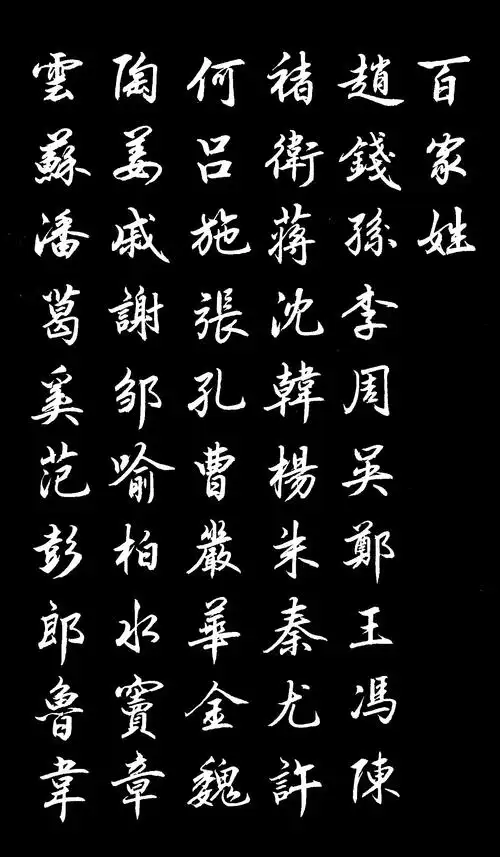 百家姓
趙錢孫李周吳鄭王馮陳
褚衛蔣沈韓楊朱秦尤許
何呂施張孔曹嚴華金魏
陶姜戚謝邹喻柏水竇章
雲蘇潘葛奚范彭郎魯韋